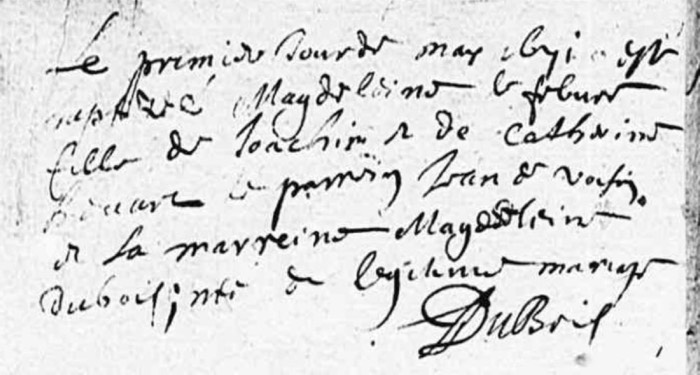 Le premier Jour de may est
baptizée Magdeleine le febure
fille de Joachim et de Catherine
le parrein Jean de Voisin
et la marreine Magdeleine
Dubois, née de legitime mariage
DuBreil